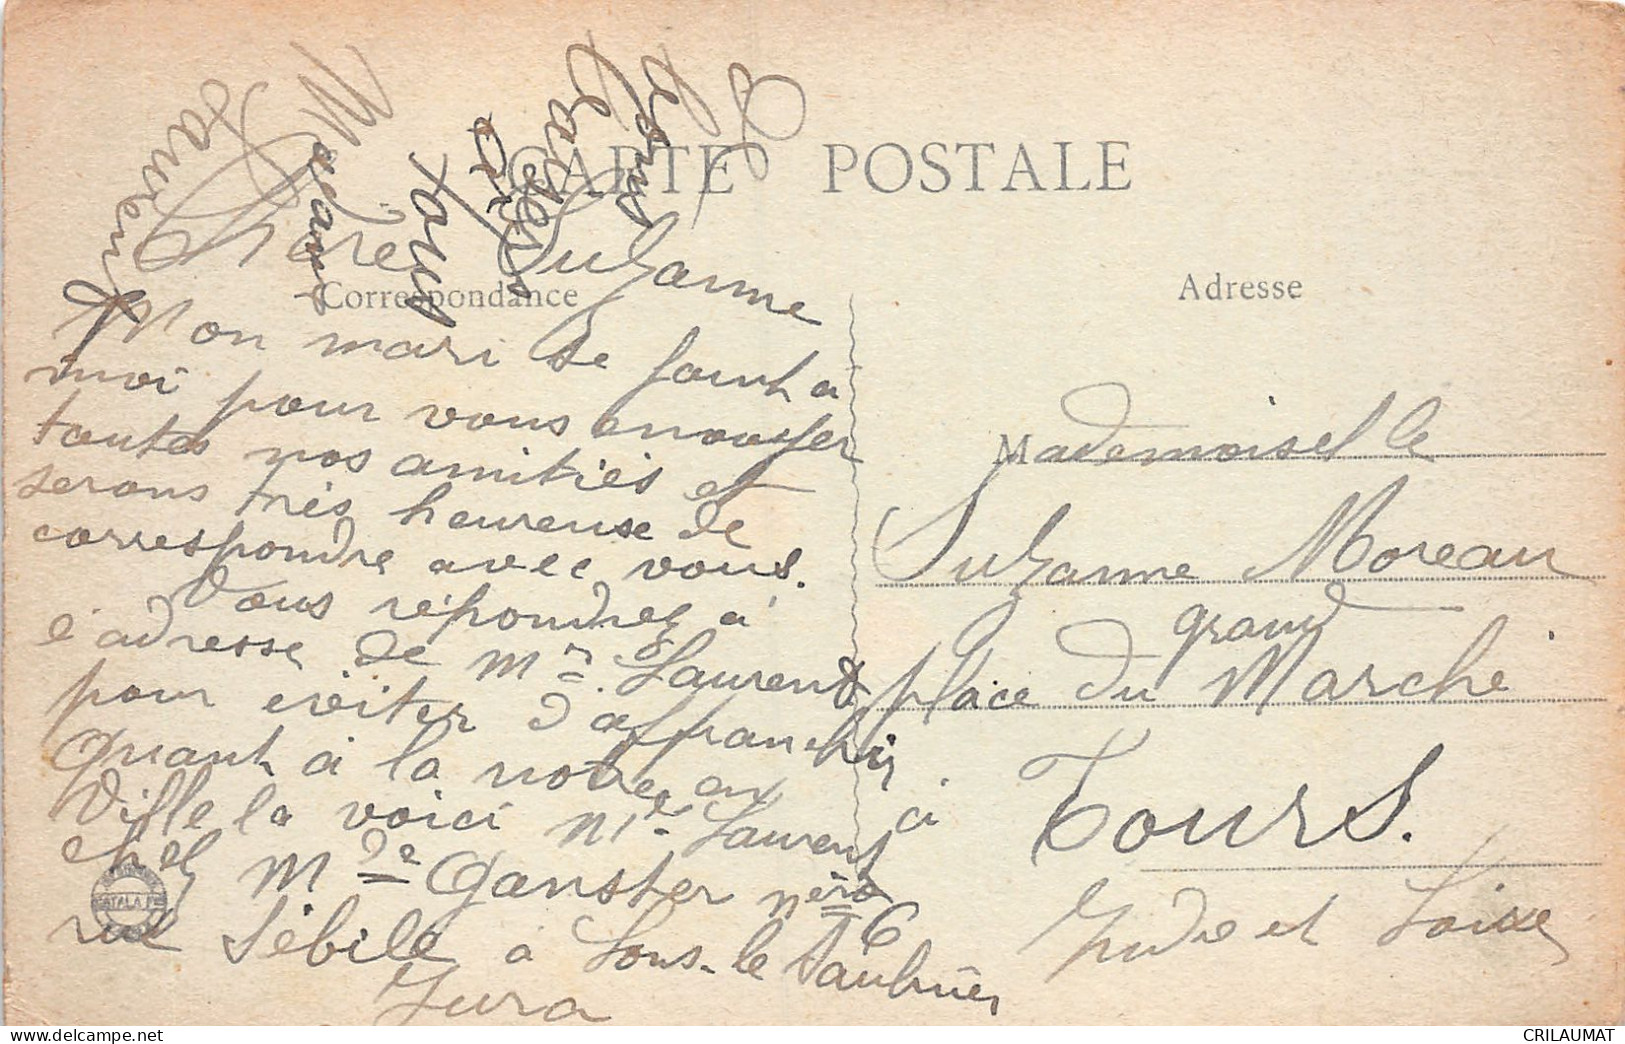 CARTE POSTALE
Correspondance
Adresse
Chère Suzanne
Mon mari se joint a
moi pour vous envoyer
toutes nos amitiés et
serons très heureuse de
correspondre avec vous.
Vous répondrez à
l'adresse de Mr Laurent
pour éviter d'affranchir
Quant à la notre en
Ville la voici Mr Laurent
chez Mde Ganster néro 6
rue Sébile à Lons-le Saulnier
Jura
Laurent
Mademoiselle
Suzanne Moreau
grand
place du Marché
à Tours.
Indre et Loire
CRILAUMAT